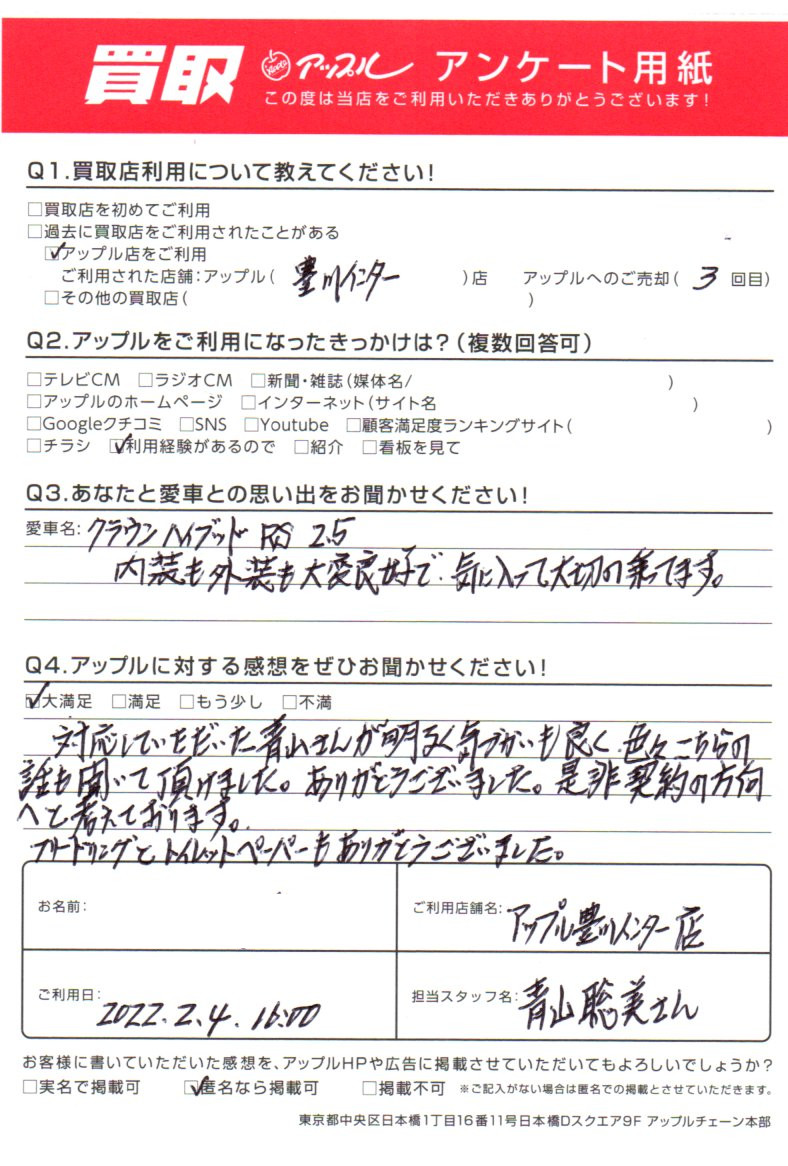 買取 アップル アンケート用紙
この度は当店をご利用いただきありがとうございます!
Q1.買取店利用について教えてください!
□買取店を初めてご利用
□過去に買取店をご利用されたことがある
☑アップル店をご利用
ご利用された店舗:アップル(豊川インター)店 アップルへのご売却(3回目)
□その他の買取店( )
Q2.アップルをご利用になったきっかけは?(複数回答可)
□テレビCM □ラジオCM □新聞・雑誌(媒体名/ )
□アップルのホームページ □インターネット(サイト名 )
□Googleクチコミ □SNS □Youtube □顧客満足度ランキングサイト( )
□チラシ ☑利用経験があるので □紹介 □看板を見て
Q3.あなたと愛車との思い出をお聞かせください!
愛車名:クラウンハイブッド RS 2.5
内装も外装も大変良好で、気に入って大切の乗ってます。
Q4.アップルに対する感想をぜひお聞かせください!
☑大満足 □満足 □もう少し □不満
対応していただいた青山さんが明るく気づかいも良く、色々こちらの
話も聞いて頂けました。ありがとうございました。是非契約の方向
へと考えております。
フリードリングとトイレットペーパーもありがとうございました。
お名前:
ご利用店舗名:アップル豊川インター店
ご利用日:2022.2.4.16:00
担当スタッフ名:青山聡美さん
お客様に書いていただいた感想を、アップルHPや広告に掲載させていただいてもよろしいでしょうか?
□実名で掲載可 ☑匿名なら掲載可 □掲載不可 ※ご記入がない場合は匿名での掲載とさせていただきます。
東京都中央区日本橋1丁目16番11号日本橋Dスクエア9F アップルチェーン本部